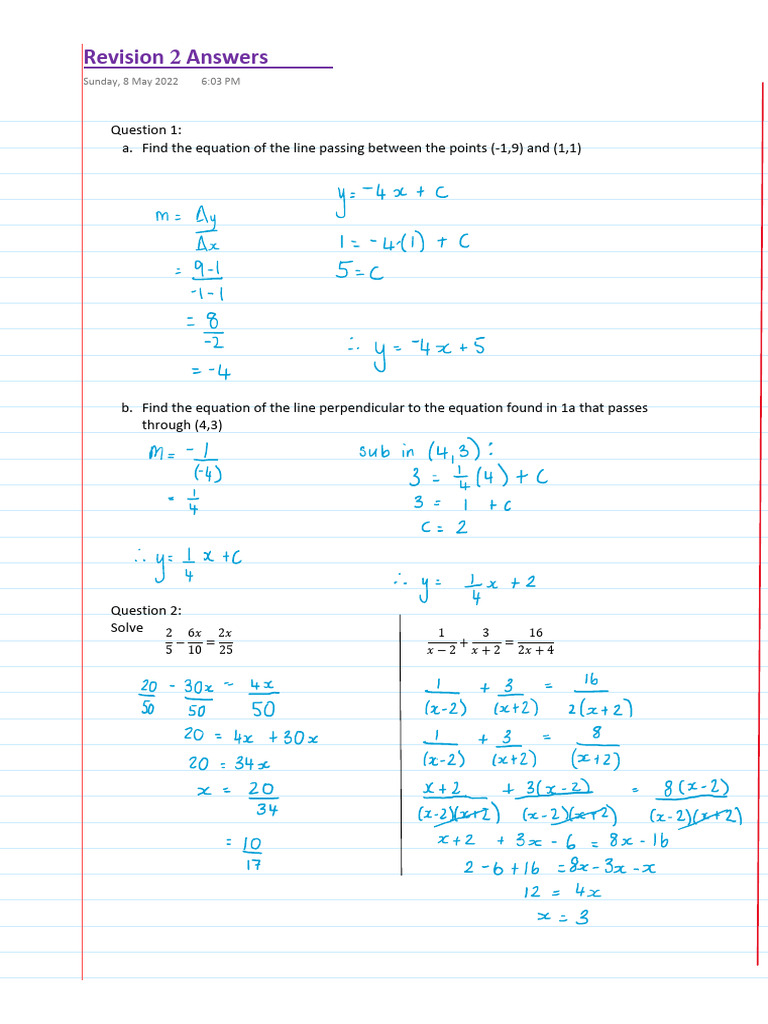 Revision 2 Answers
Sunday, 8 May 2022 6:03 PM
Question 1:
a. Find the equation of the line passing between the points (-1,9) and (1,1)
m = Δy/Δx
= 9-1/-1-1
= 8/-2
= -4
y = -4x + C
1 = -4·(1) + C
5 = C
∴ y = -4x + 5
b. Find the equation of the line perpendicular to the equation found in 1a that passes
through (4,3)
M = -1/(-4)
= 1/4
∴ y = 1/4 x + C
sub in (4,3):
3 = 1/4 (4) + C
3 = 1 + c
C = 2
∴ y = 1/4 x + 2
Question 2:
Solve
2/5 − 6x/10 = 2x/25
20/50 - 30x/50 = 4x/50
20 = 4x + 30x
20 = 34x
x = 20/34
= 10/17
1/x − 2 + 3/x + 2 = 16/2x + 4
1/(x-2) + 3/(x+2) = 16/2(x+2)
1/(x-2) + 3/(x+2) = 8/(x+2)
x+2/(x-2)(x+2) + 3(x-2)/(x-2)(x+2) = 8(x-2)/(x-2)(x+2)
x+2 + 3x - 6 = 8x - 16
2 - 6 + 16 = 8x - 3x - x
12 = 4x
x = 3